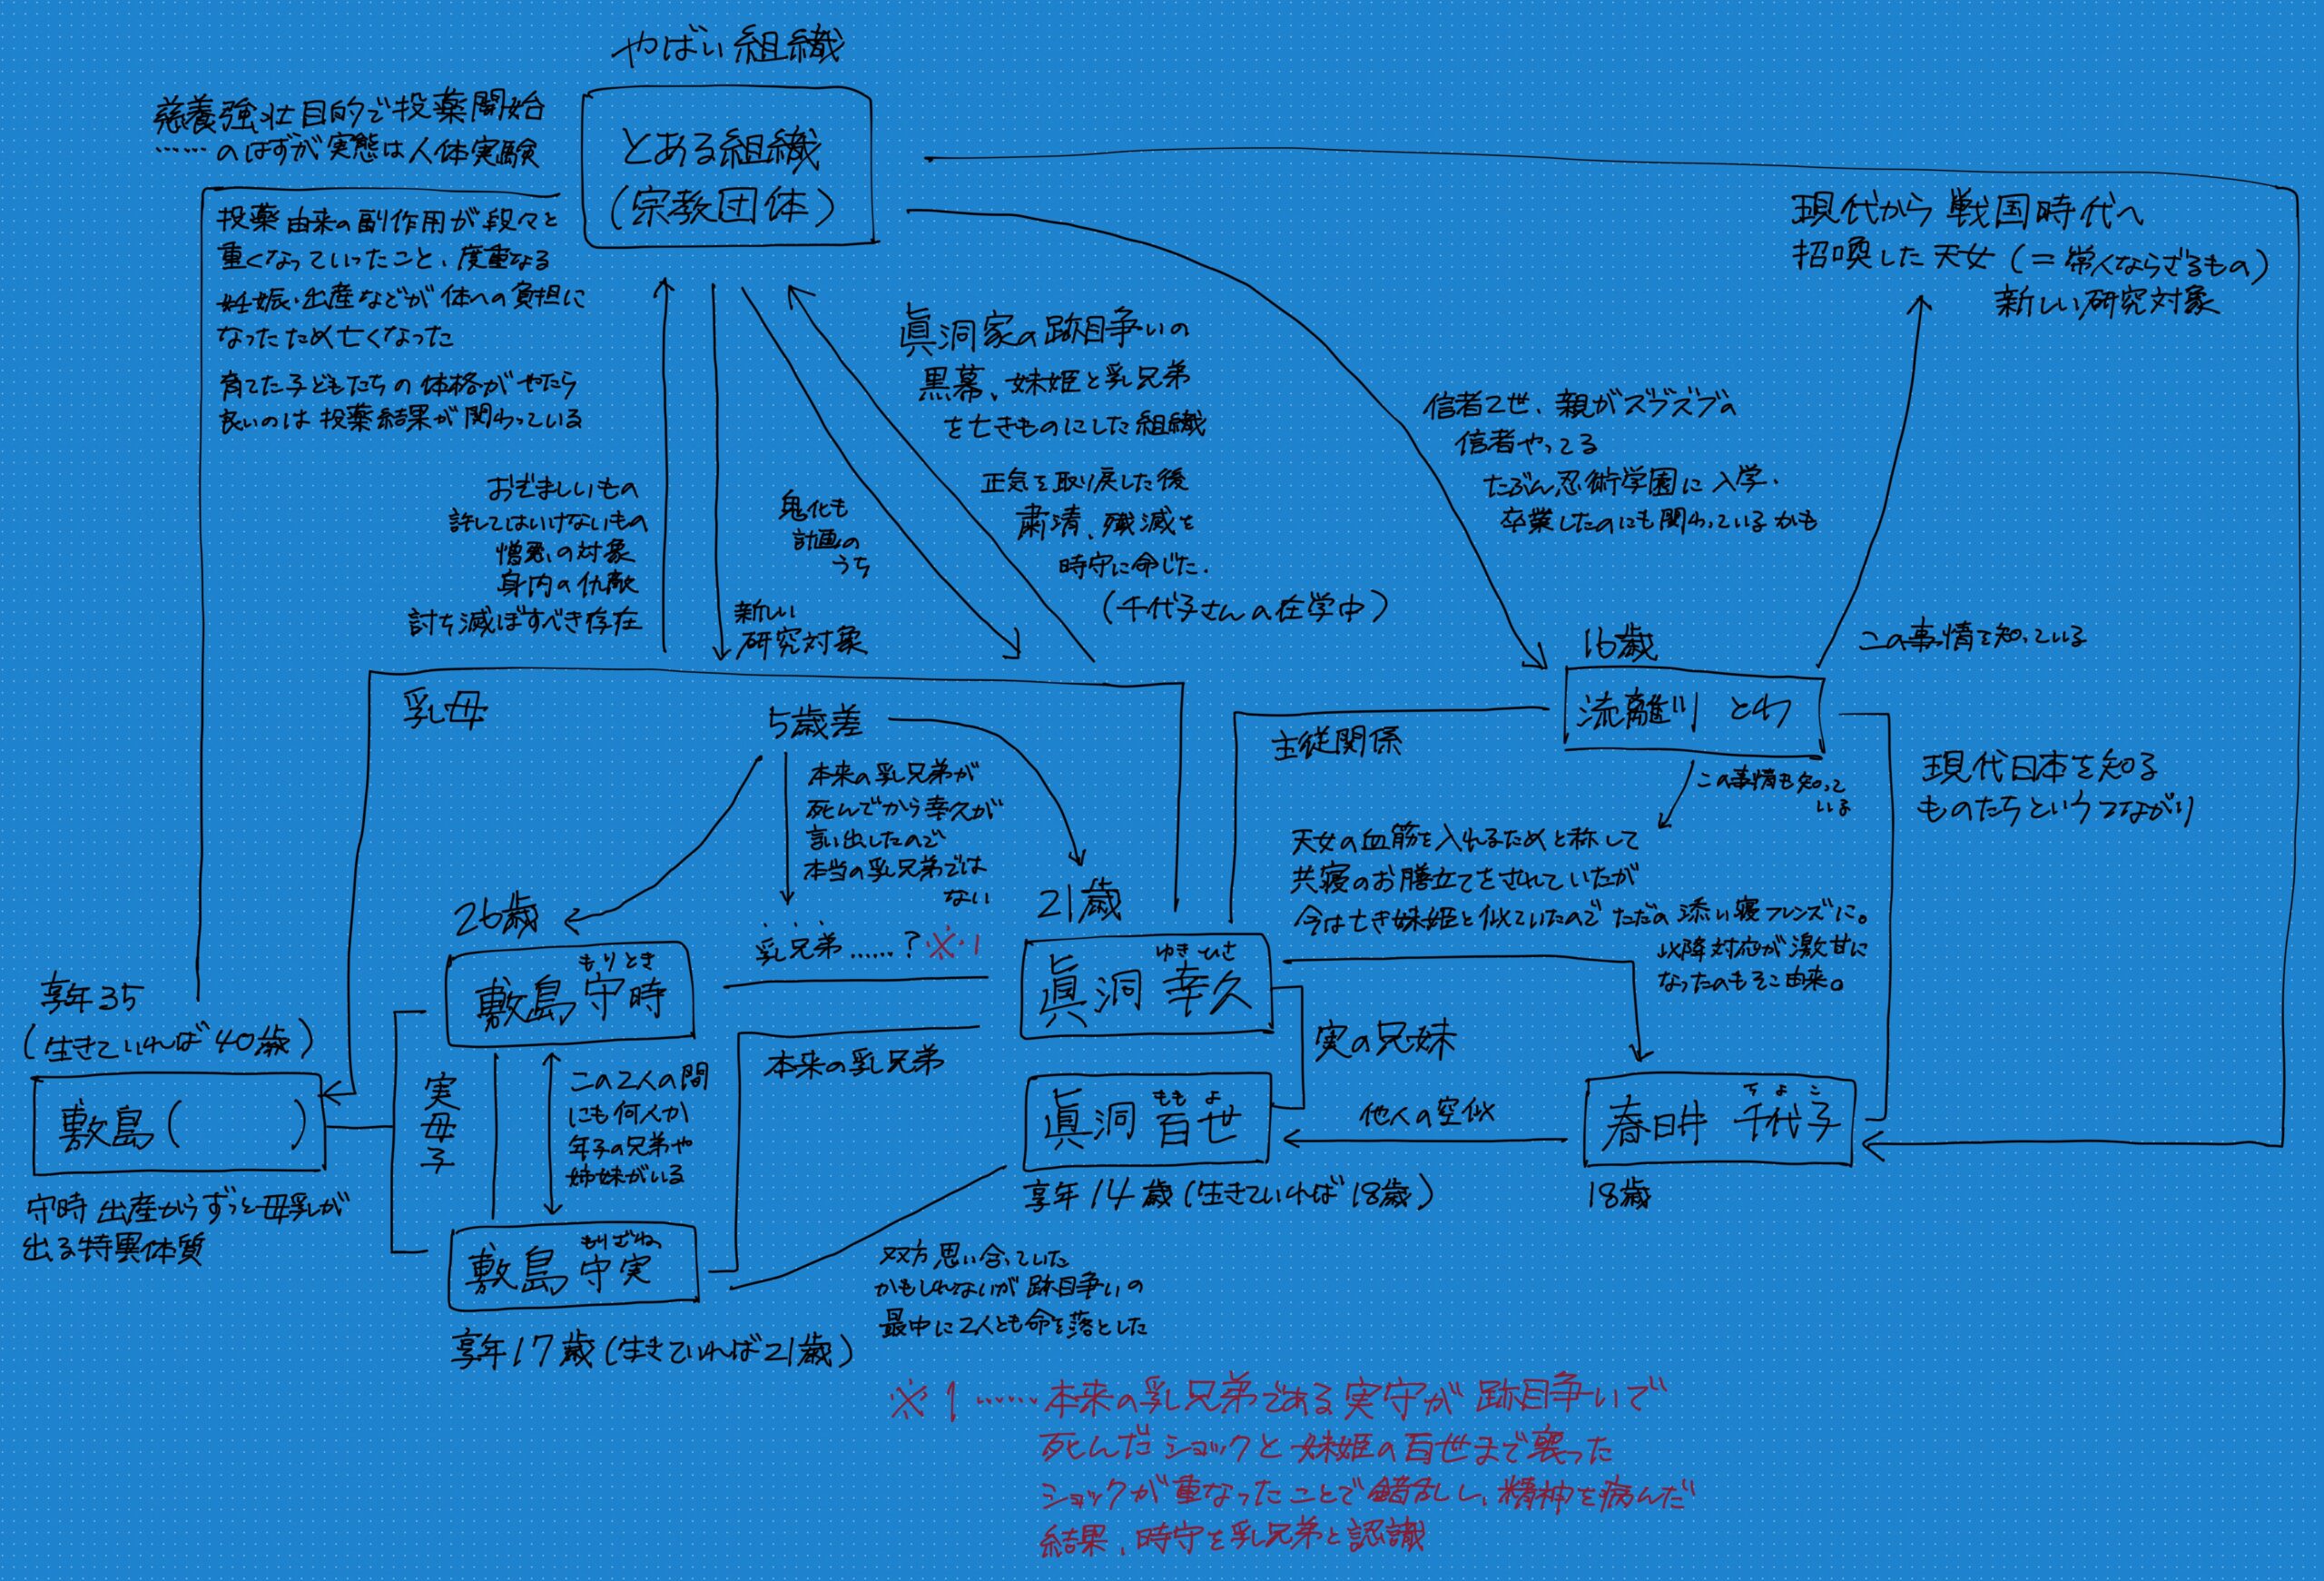 やばい組織
とある組織
(宗教団体)
慈養強壮目的で投薬開始
……のはずが実態は人体実験
投薬由来の副作用が段々と
重くなっていったこと、度重なる
妊娠・出産などが体への負担に
なったため亡くなった
育てた子どもたちの体格がやたら
良いのは投薬結果が関わっている
おぞましいもの
許してはいけないもの
憎悪の対象
身内の仇敵
討ち滅ぼすべき存在
新しい
研究対象
鬼化も
計画の
うち
眞洞家の跡目争いの
黒幕、妹姫と乳兄弟
を亡きものにした組織
正気を取り戻した後
粛清、殲滅を
時守に命じた.
(千代子さんの在学中)
信者2世、親がズブズブの
信者やってる
たぶん忍術学園に入学・
卒業したのにも関わっているかも
現代から戦国時代へ
招喚した天女(=常人ならざるもの)
新しい研究対象
この事情を知っている
16歳
流離川 とわ
主従関係
この事情も知って
いる
現代日本を知る
ものたちというつながり
乳母
5歳差
本来の乳兄弟が
死んでから幸久が
言い出したので
本当の乳兄弟では
ない
乳兄弟……?※1
天女の血筋を入れるためと称して
共寝のお膳立てをされていたが
今は亡き妹姫と似ていたのでただの添い寝フレンズに。
以降対応が激甘に
なったのもそこ由来。
26歳
もりとき
敷島 守時
21歳
ゆきひさ
眞洞 幸久
享年35
(生きていれば40歳)
敷島(　　)
守時出産からずっと母乳が
出る特異体質
実母子
この2人の間
にも何人か
年子の兄弟や
姉妹がいる
本来の乳兄弟
実の兄妹
ももよ
眞洞 百世
享年14歳(生きていれば18歳)
他人の空似
ちよこ
春日井 千代子
18歳
もりざね
敷島 守実
享年17歳(生きていれば21歳)
双方思い合っていた
かもしれないが跡目争いの
最中に2人とも命を落とした
※1……本来の乳兄弟である実守が跡目争いで
死んだショックと妹姫の百世まで襲った
ショックが重なったことで錯乱し、精神を病んだ
結果、時守を乳兄弟と認識